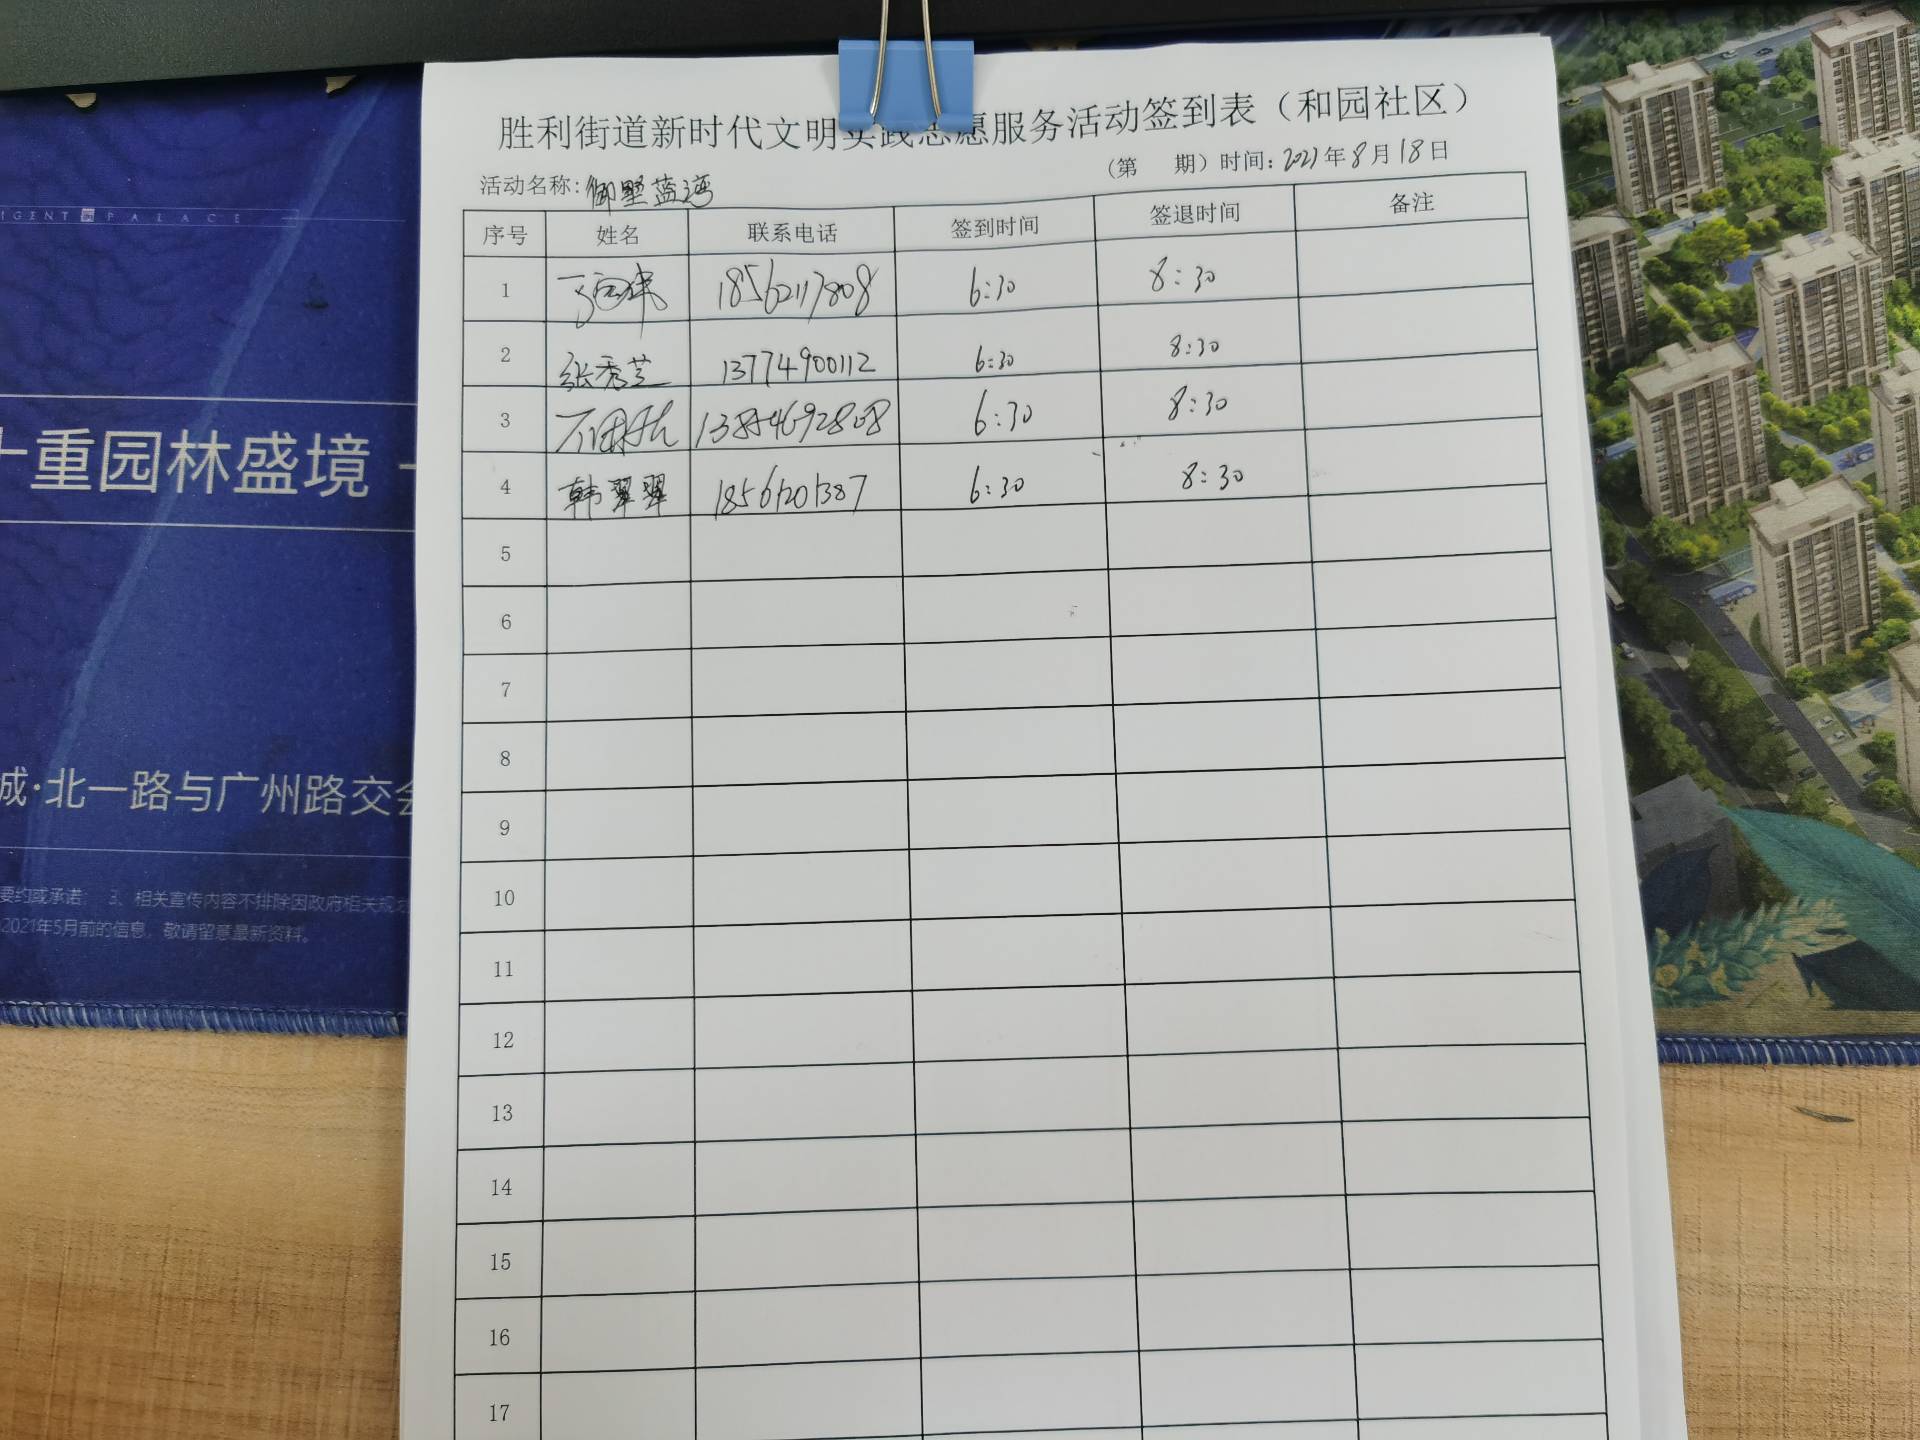 胜利街道新时代文明实践志愿服务活动签到表（和园社区）
（第 期）时间：2021年8月18日
活动名称：御墅蓝湾
序号 姓名 联系电话 签到时间 签退时间 备注
1 18562117808 6:30 8:30
2 张秀芝 13774900112 6:30 8:30
3 13854692808 6:30 8:30
4 韩翠翠 18561201387 6:30 8:30
5
6
7
8
9
10
11
12
13
14
15
16
17
IGENT PALACE
十重园林盛境
城·北一路与广州路交会
要约或承诺； 3、相关宣传内容不排除因政府相关规
2021年5月前的信息，敬请留意最新资料。